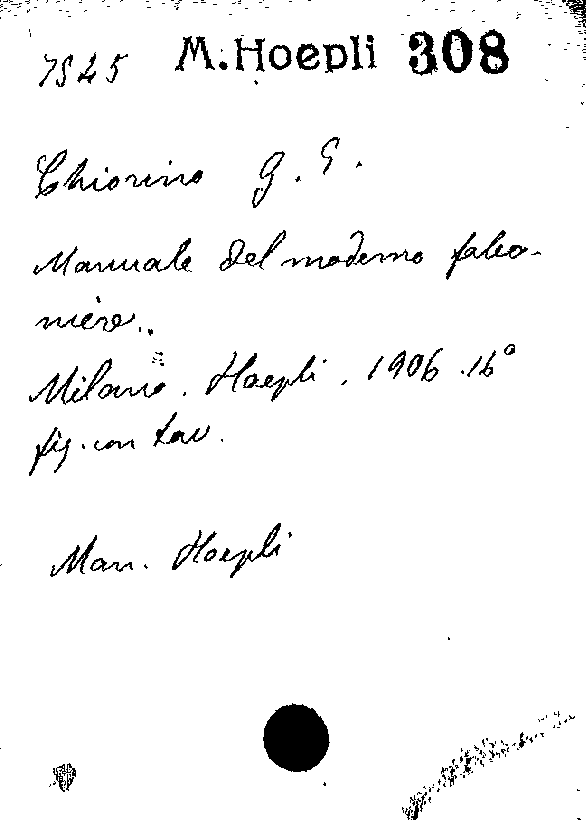 7545 M. Hoepli 308
Chiorino G. E.
Manuale del moderno falco-
niere.
Milano. Hoepli. 1906. 16°
fig. con tav.
Man. Hoepli